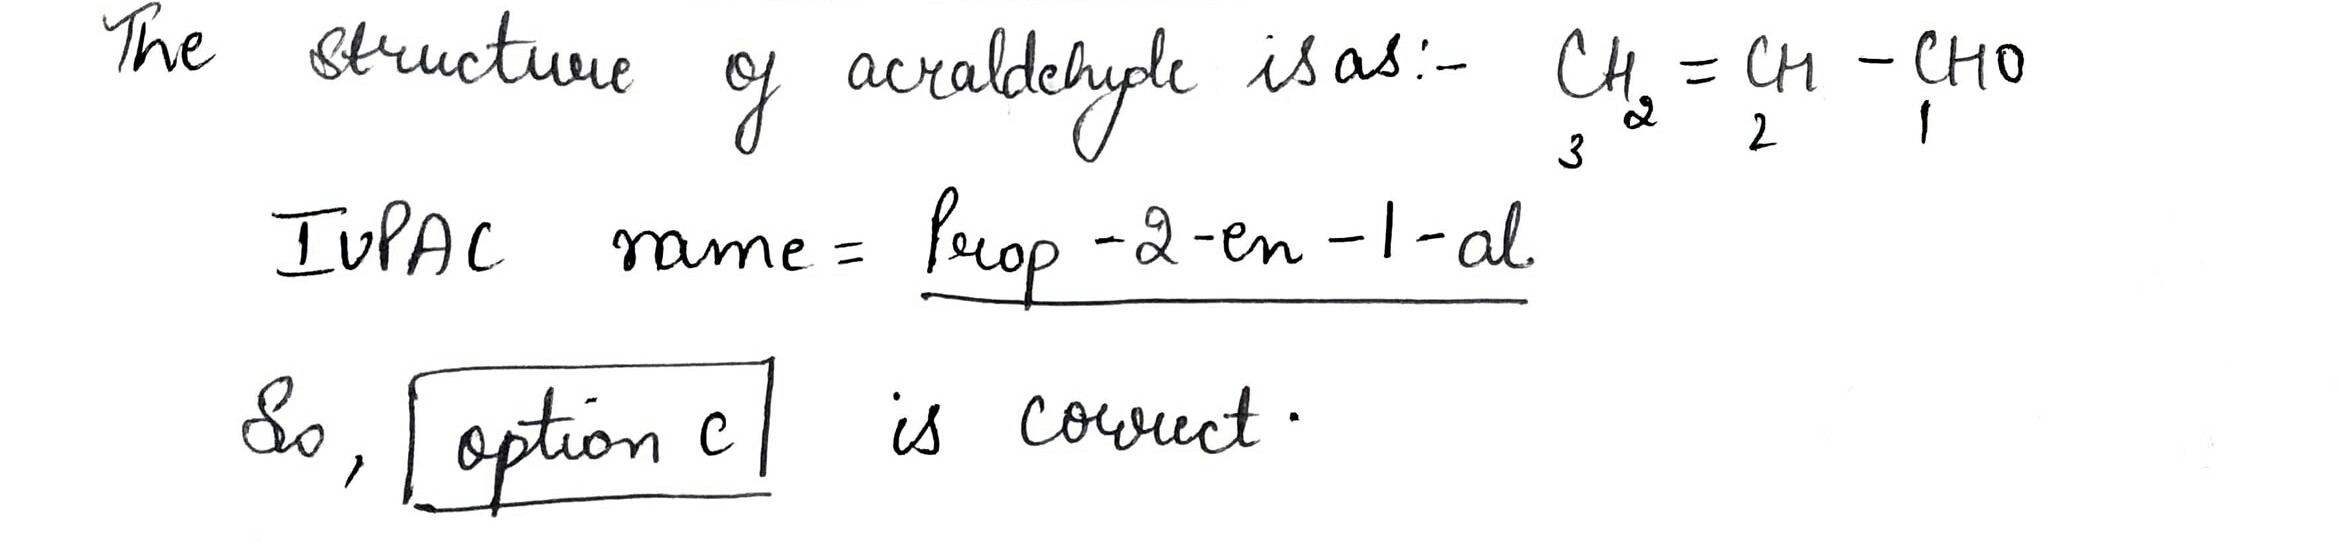 The structure of acraldehyde is as:- CH2 = CH - CHO
3 2 1
IUPAC name = Prop-2-en-1-al.
So, option c is correct.